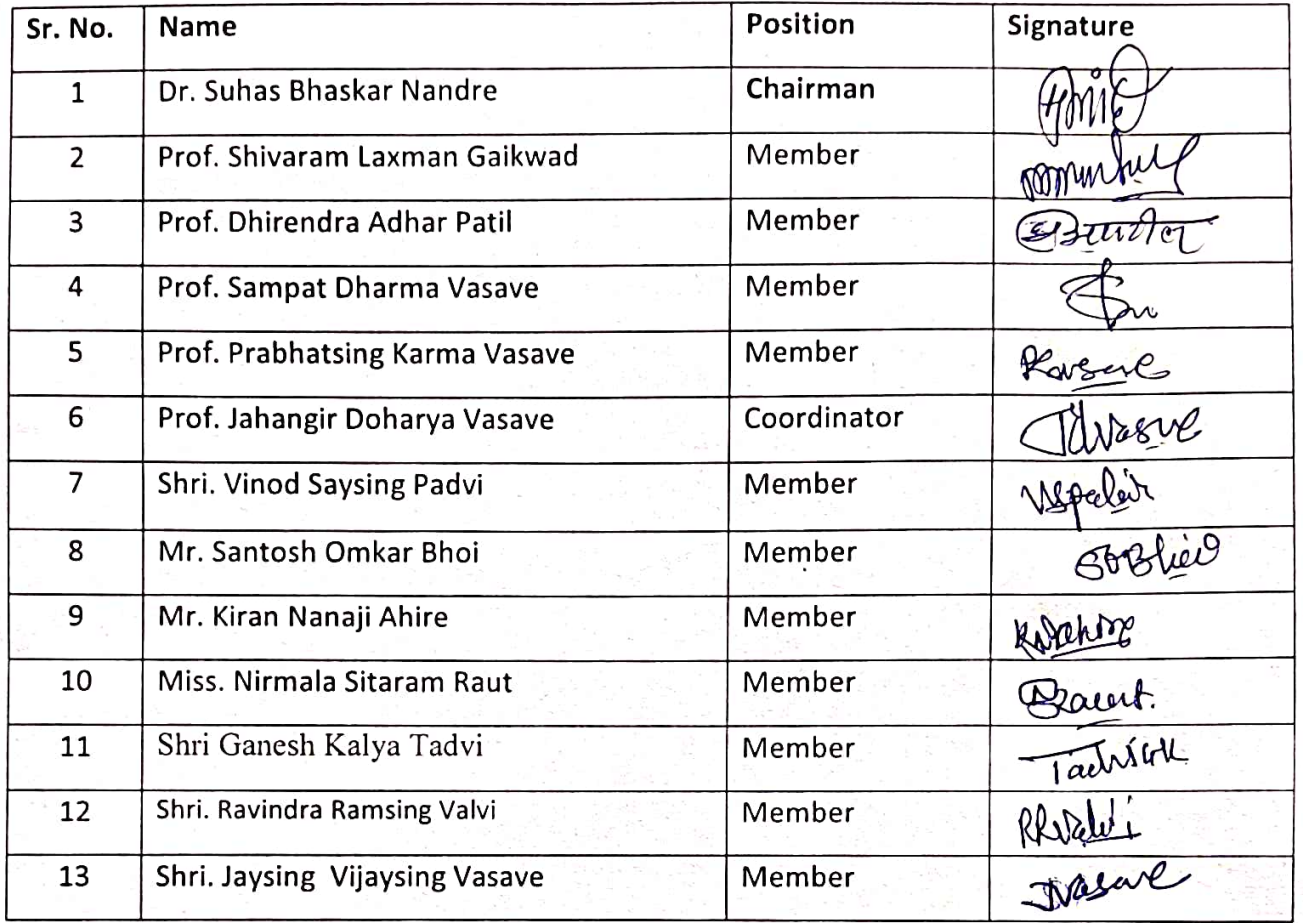 Sr. No. Name Position Signature
1 Dr. Suhas Bhaskar Nandre Chairman
2 Prof. Shivaram Laxman Gaikwad Member
3 Prof. Dhirendra Adhar Patil Member
4 Prof. Sampat Dharma Vasave Member
5 Prof. Prabhatsing Karma Vasave Member
6 Prof. Jahangir Doharya Vasave Coordinator JDVasve
7 Shri. Vinod Saysing Padvi Member
8 Mr. Santosh Omkar Bhoi Member
9 Mr. Kiran Nanaji Ahire Member
10 Miss. Nirmala Sitaram Raut Member
11 Shri Ganesh Kalya Tadvi Member
12 Shri. Ravindra Ramsing Valvi Member RRValvi
13 Shri. Jaysing Vijaysing Vasave Member